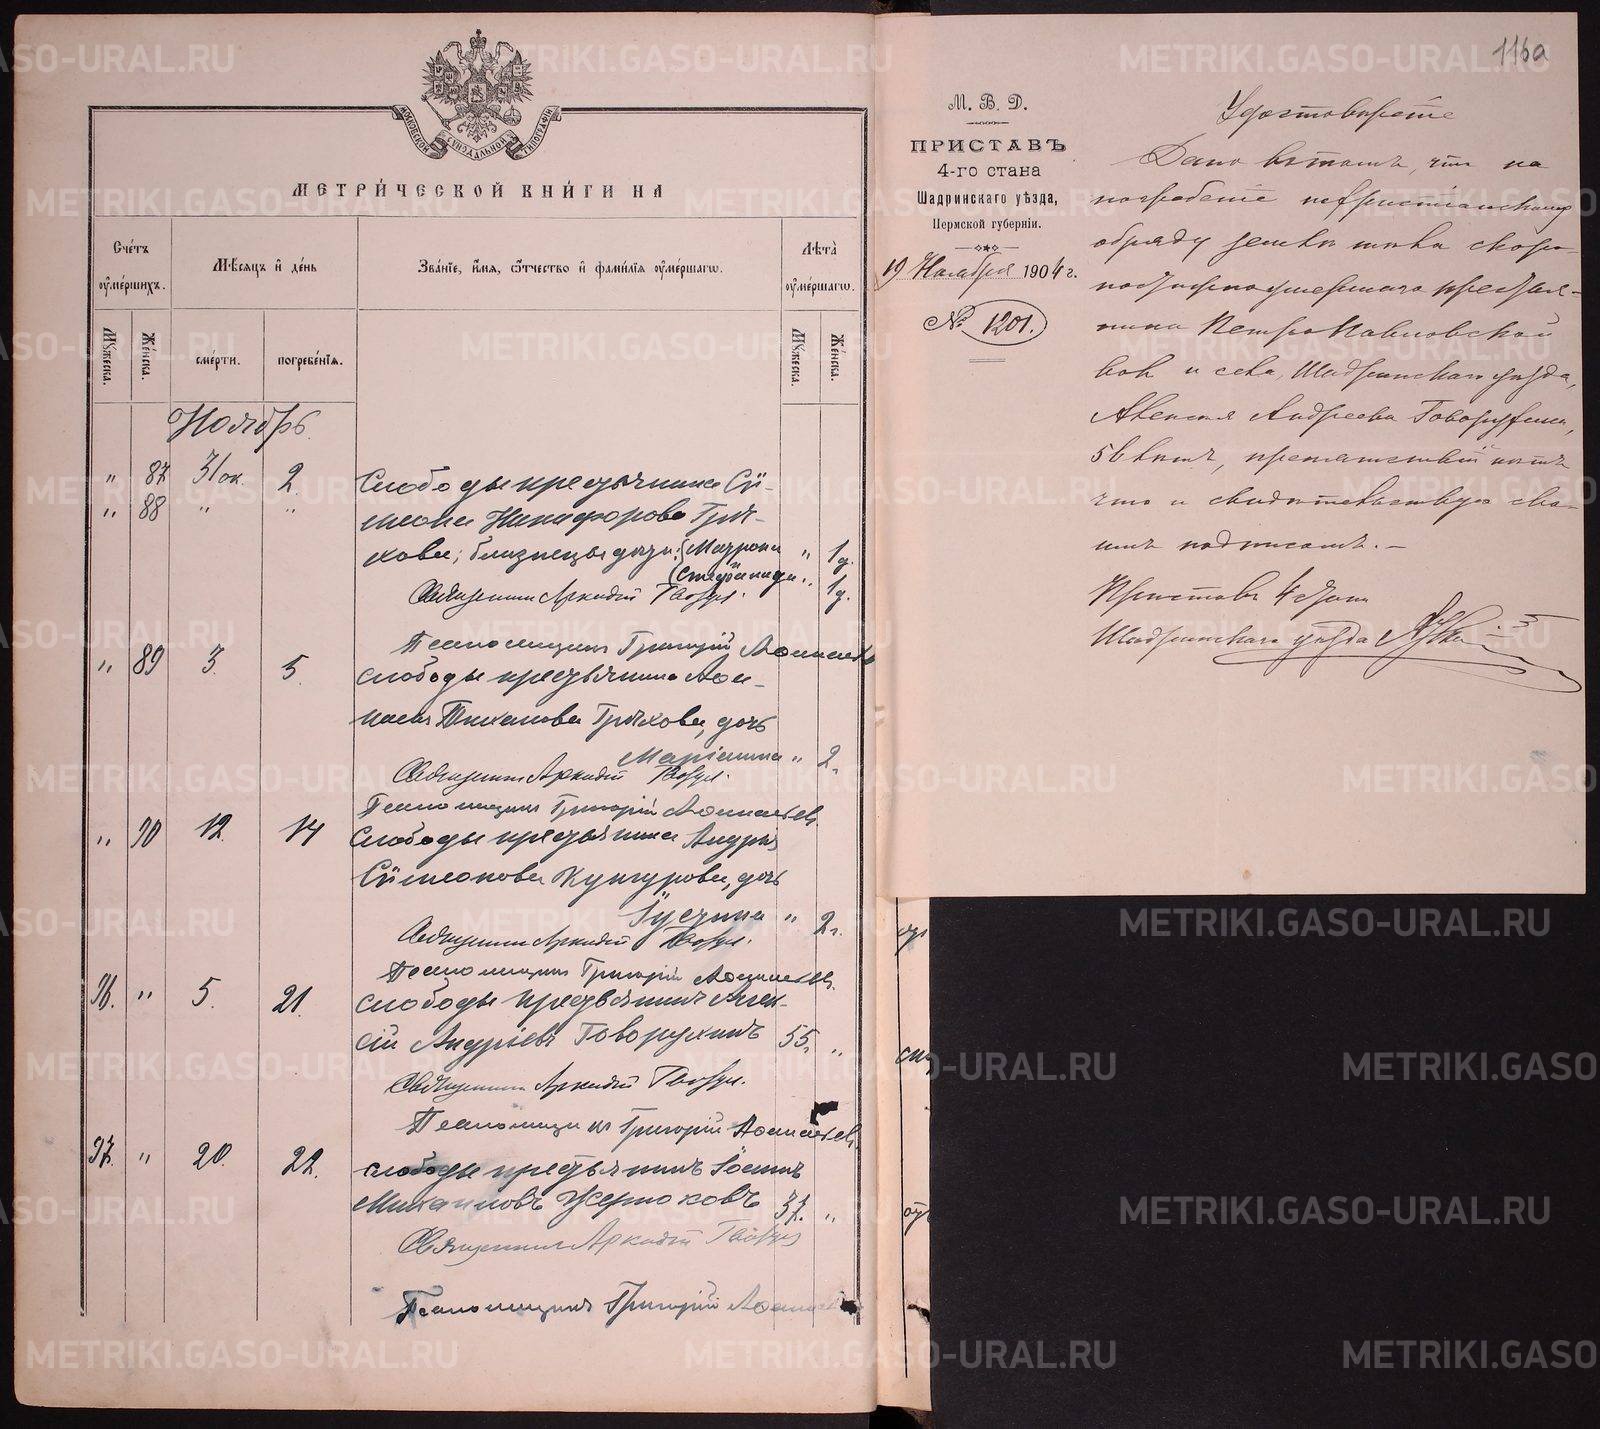 МОСКОВСКОЙ СѴНОДАЛЬНОЙ ТИПОГРАФІИ
МЕТРИ́ЧЕСКОЙ КНИ́ГИ НА
Сче́тъ оуме́ршихъ.
Мѣсяцъ и де́нь
Зва́нїе, и́мя, ѻ́тчество и фами́лїя оуме́ршагѡ.
Лѣта̀ оуме́ршагѡ.
Мꙋжеска.
Же́нска.
сме́рти.
погребе́нїя.
Мꙋжеска.
Же́нска.
Ноябрь.
" 87 31 ок. 2 Слободы крестьянина Сѵ-
" 88 " " меона Никифорова Гря-
хова, близнецы дочи: Матрона " 1 д.
Стефанида " 1 д.
Священникъ Аркадій
Псаломщикъ Григорій Аѳанасьевъ
" 89 3. 5. слободы крестьянина Аѳа-
насія Тиханова Грѣхова, дочь
Маріамна " 2 г.
Священникъ Аркадій
Псаломщикъ Григорій Аѳанасьевъ.
" 90 12. 14 Слободы крестьянина Андрея
Сѵмеонова Кунгурова, дочь
Іустина " 2 г.
Священникъ Аркадій
Псаломщикъ Григорій Аѳанасьевъ.
96. " 5. 21. слободы крестьянинъ Алек-
сій Андріевъ Говорухинъ 55. "
Священникъ Аркадій
Псаломщикъ Григорій Аѳанасьевъ.
97. " 20. 22. слободы крестьянинъ Іоаннъ
Михаиловъ Жерноковъ 37. "
Священникъ Аркадій
Псаломщикъ Григорій
116а
М. В. Д.
ПРИСТАВЪ
4-го стана
Шадринскаго уѣзда,
Пермской губерніи.
19 Ноября 1904 г.
№ 1201.
Удостовѣреніе
Дано въ томъ, что на
погребеніе по христіанскому
обряду
скоропостижно умершаго крестья-
нина Петропавловской
вол. и села, Шадринскаго уѣзда,
Алексѣя Андреева Говорухина,
56 лѣтъ, препятствій нѣтъ
что и свидѣтельствую сво-
имъ подписомъ. —
Приставъ 4 стана
Шадринскаго уѣзда
METRIKI.GASO-URAL.RU